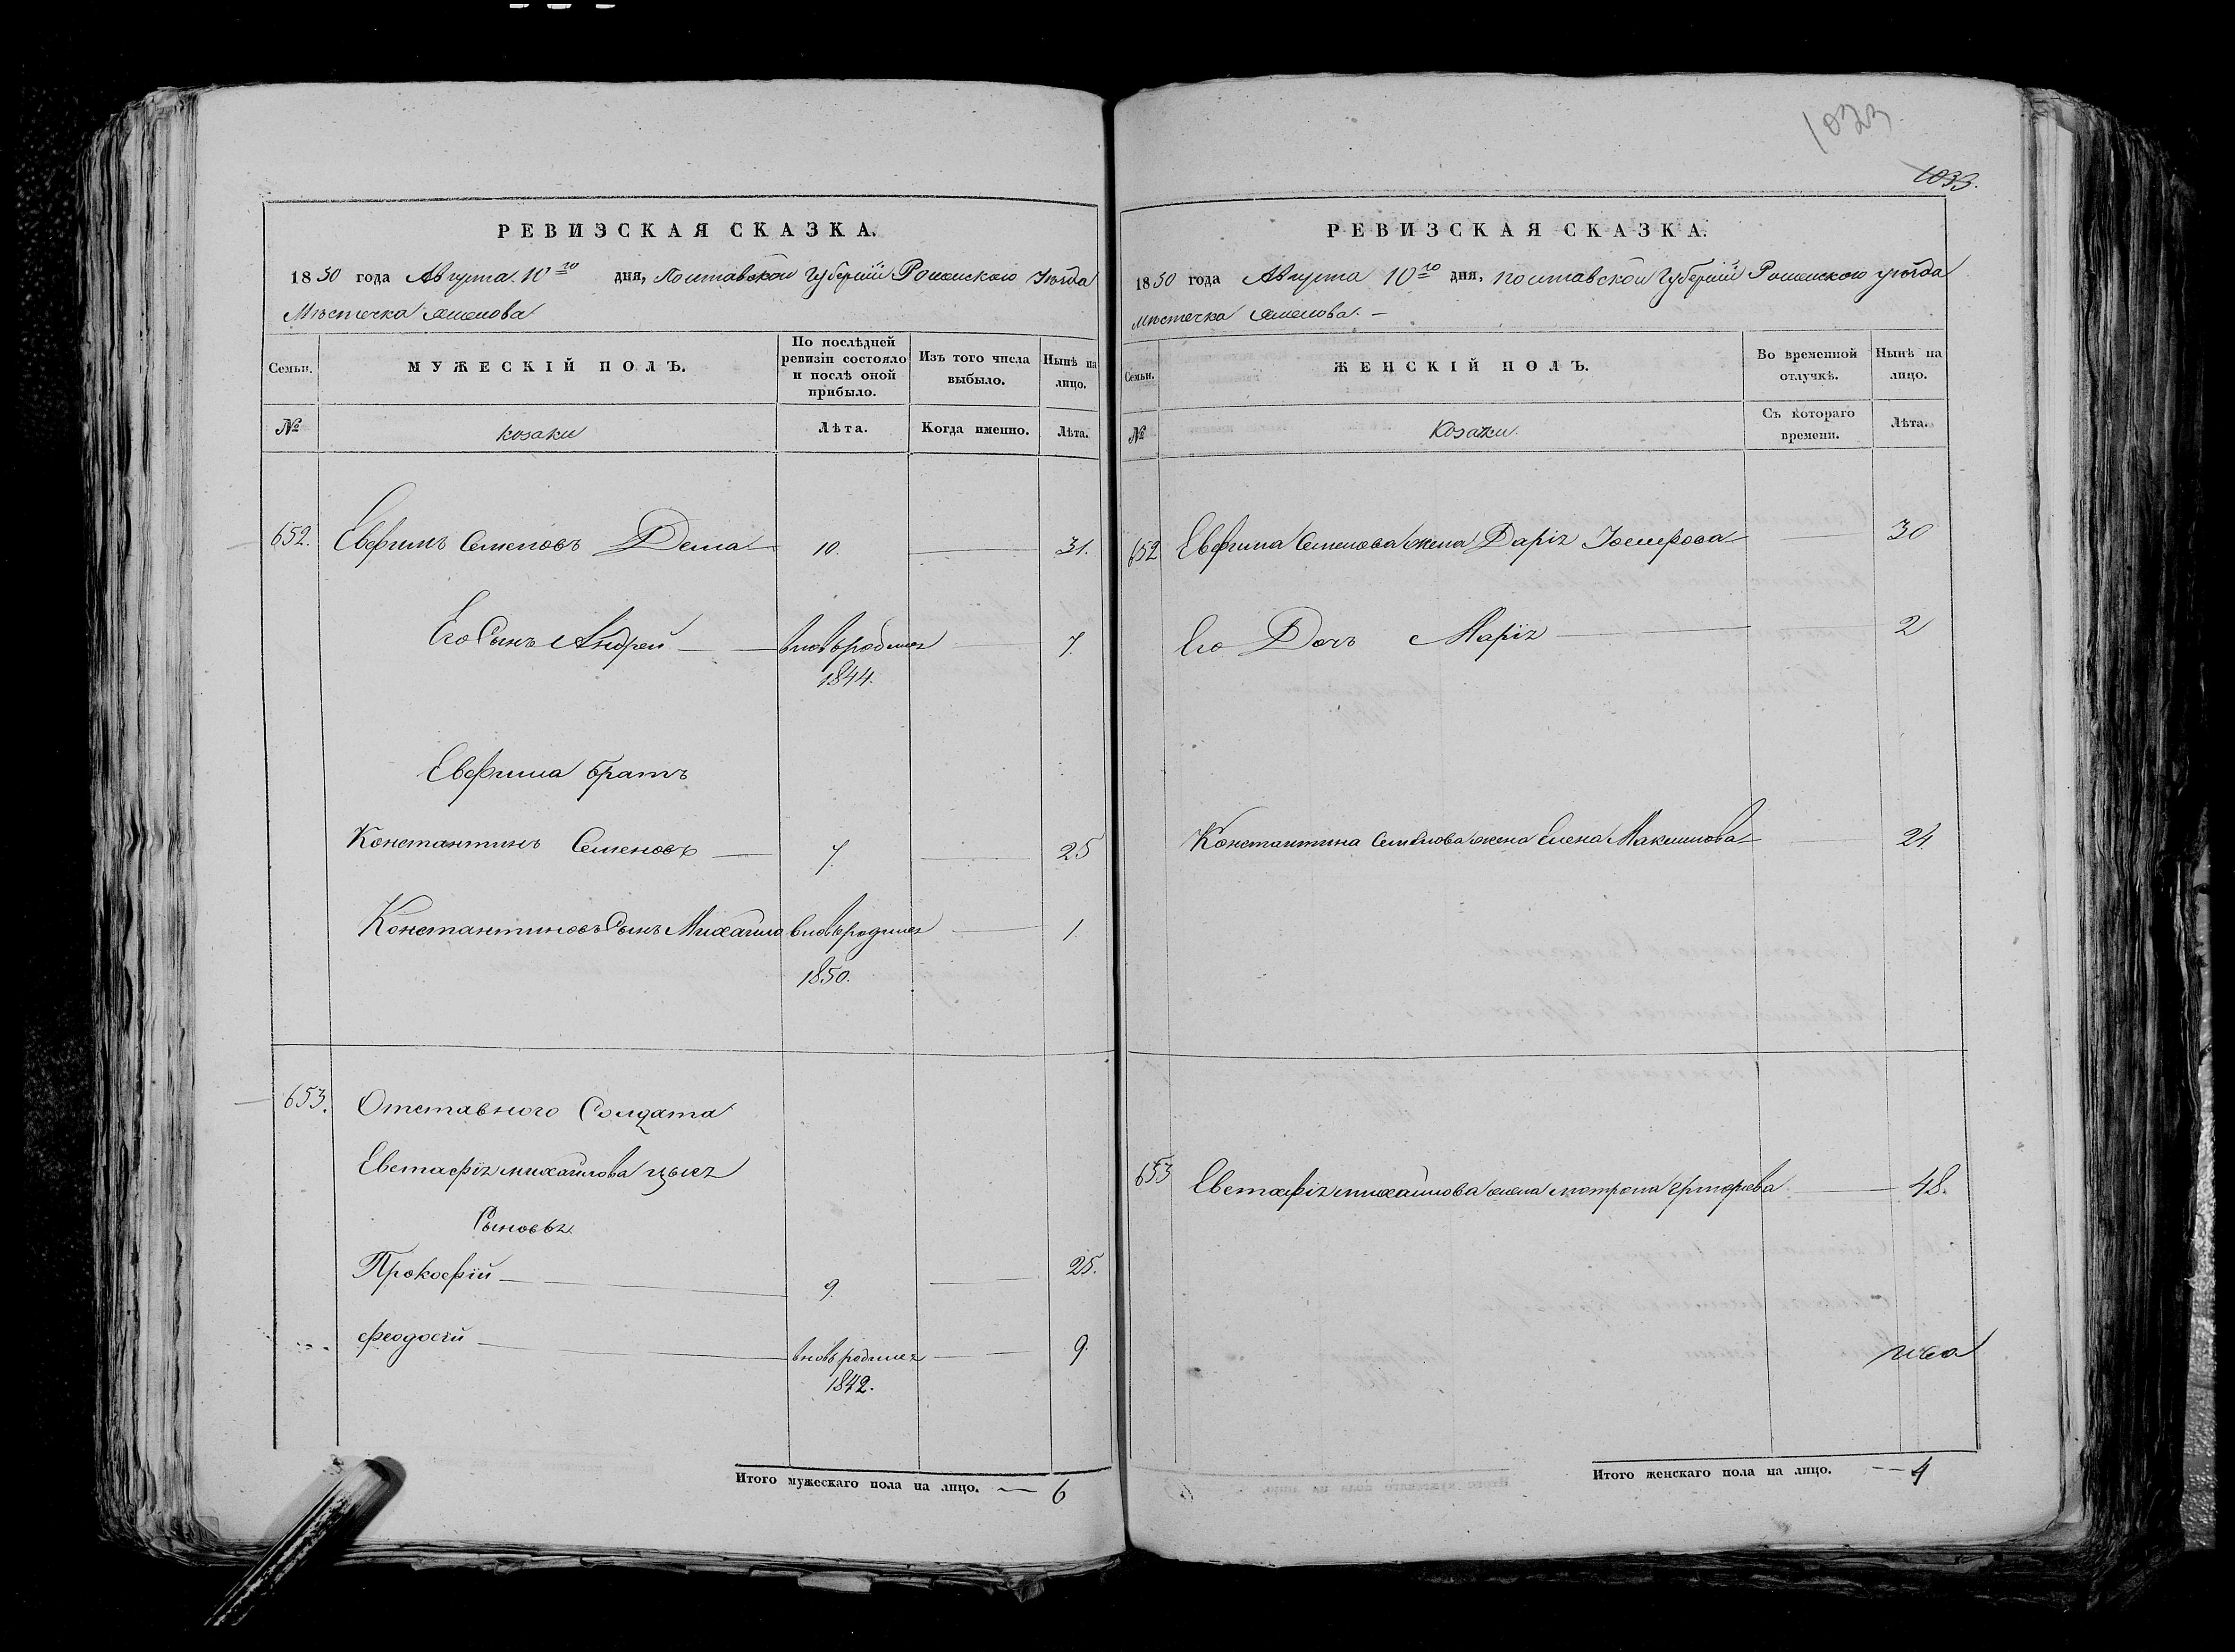 РЕВИЗСКАЯ СКАЗКА.
1850 года Августа 10го дня, Полтавской Губернии Роменского Уезда
Местечка Смелова
Семьи. МУЖЕСКІЙ ПОЛЪ. По послѣдней ревизіи состояло и послѣ оной прибыло. Изъ того числа выбыло. Нынѣ на лицо.
№ козаки Лѣта. Когда именно. Лѣта.
652. Евфимъ Семеновъ 10. 31.
Его Сынъ Андрей вновьродился 7.
1844.
Евфима братъ
Константинъ Семеновъ 7. 25
Константиновъ Сынъ Михайло вновьродился 1.
1850.
653. Отставного Солдата
Евстафія михайлова
Сыновья
Прокофій 9. 25.
феодосій вновьродился 9.
1842.
Итого мужескаго пола на лицо. 6
1023
1033.
РЕВИЗСКАЯ СКАЗКА.
1850 года Августа 10го дня, полтавской Губернии Роменского уезда
местечка Смелова.
Семьи. ЖЕНСКІЙ ПОЛЪ. Во временной отлучкѣ. Нынѣ на лицо.
№ Козаки. Съ котораго времени. Лѣта.
652 Евфима Семенова жена Дарія 30
Его Дочь Марія 2
Константина Семенова жена Елена Максимова 24.
653 Евстафія михайлова жена мотрона григорієва 48.
Итого женскаго пола на лицо. 4